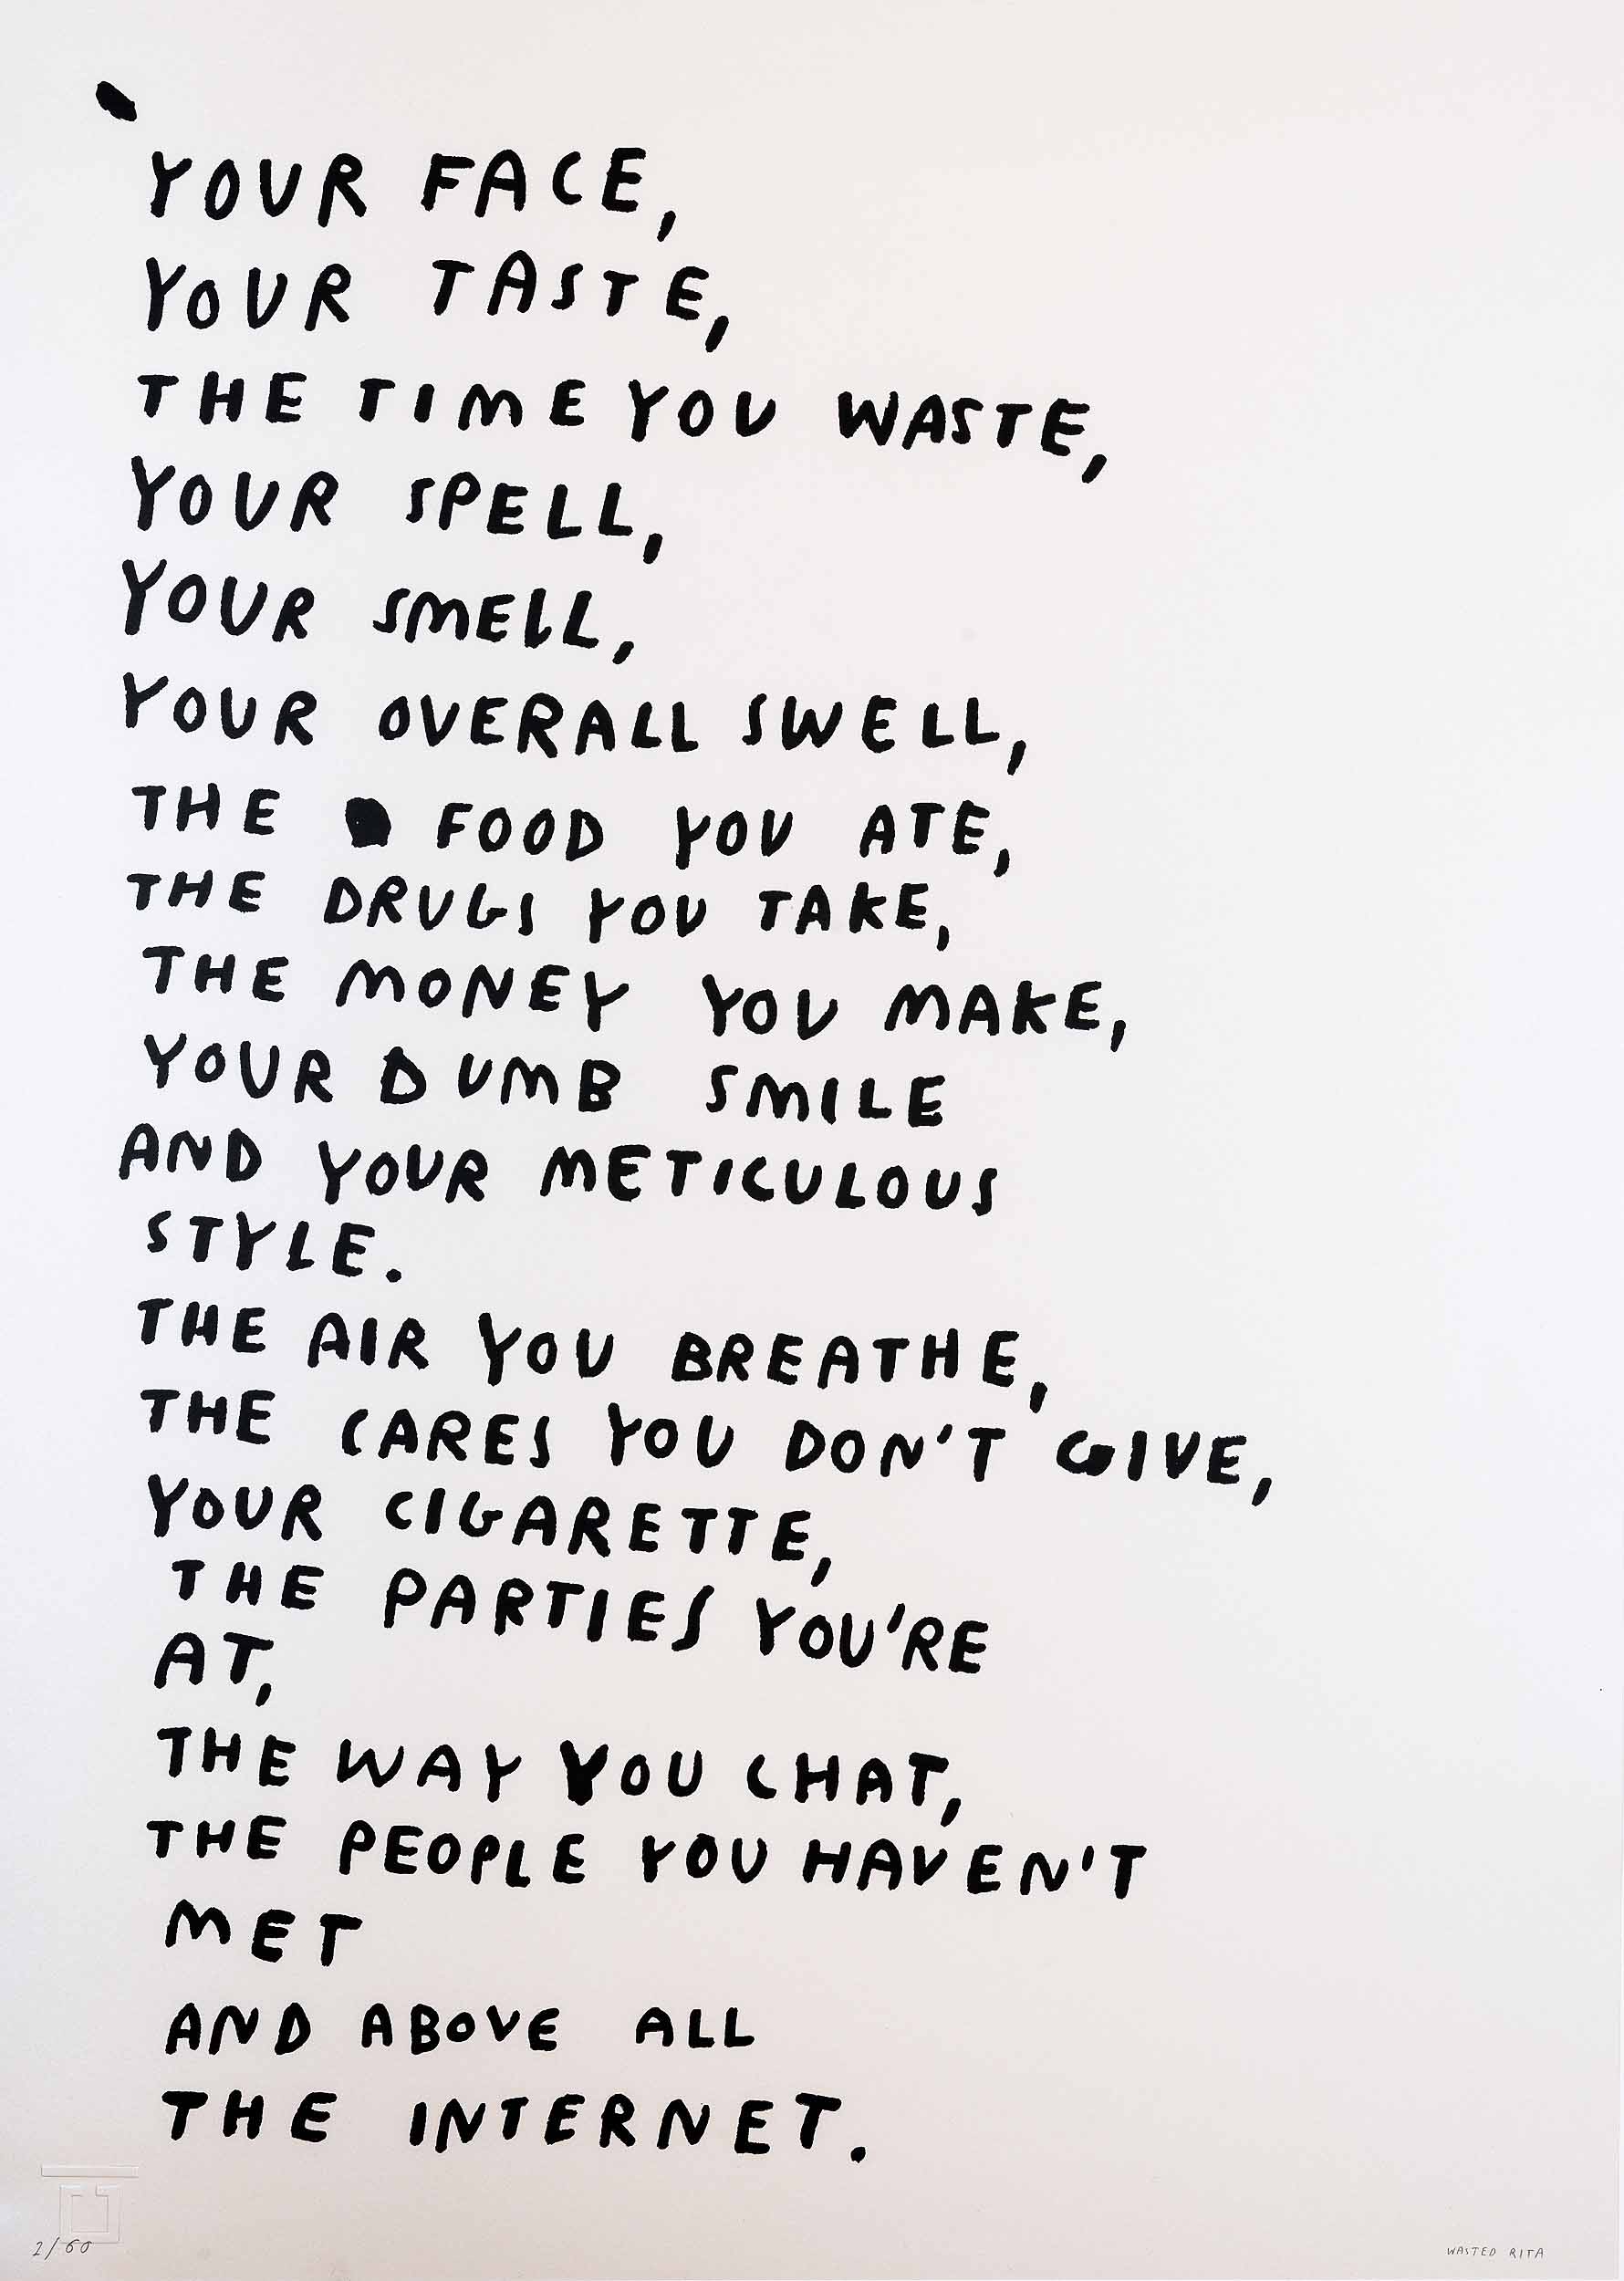 YOUR FACE,
YOUR TASTE,
THE TIME YOU WASTE,
YOUR SPELL,
YOUR SMELL,
YOUR OVERALL SWELL,
THE FOOD YOU ATE,
THE DRUGS YOU TAKE,
THE MONEY YOU MAKE,
YOUR DUMB SMILE
AND YOUR METICULOUS
STYLE.
THE AIR YOU BREATHE,
THE CARES YOU DON'T GIVE,
YOUR CIGARETTE,
THE PARTIES YOU'RE
AT,
THE WAY YOU CHAT,
THE PEOPLE YOU HAVEN'T
MET
AND ABOVE ALL
THE INTERNET.
2/60
WASTED RITA